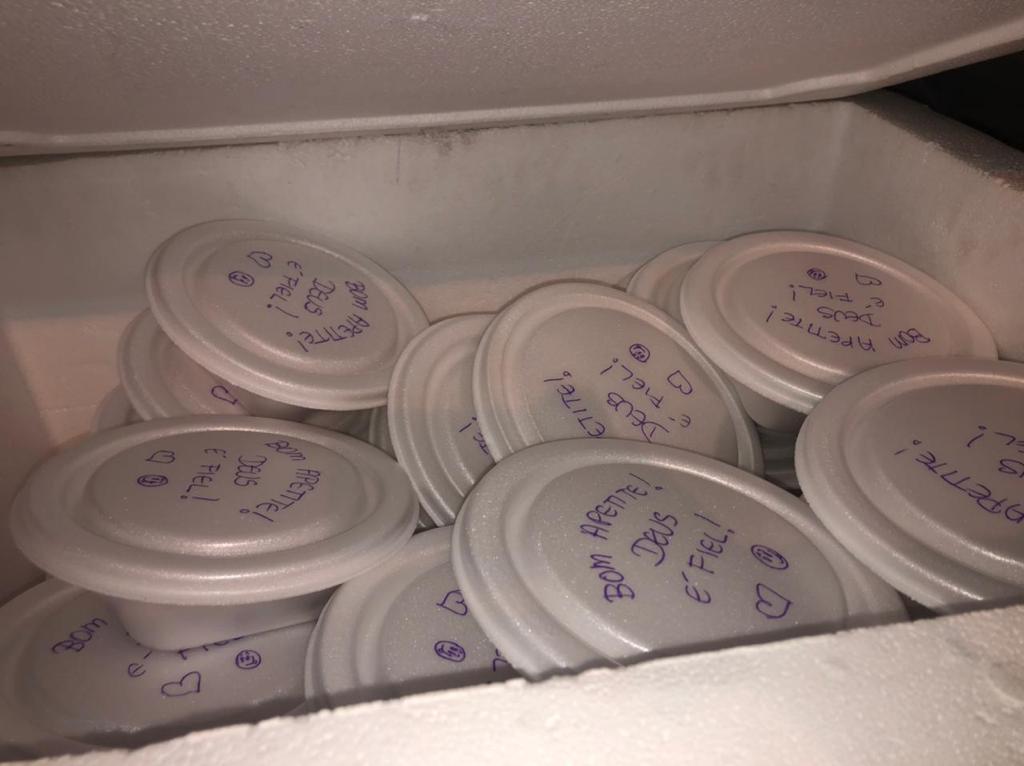 BOM APETITE!
DEUS
É FIEL!
BOM APETITE!
DEUS
É FIEL!
ETITE!
DEUS
É FIEL!
BOM
APETITE!
DEUS
É FIEL!
BOM APETITE!
DEUS
É FIEL!
APETITE!
BOM